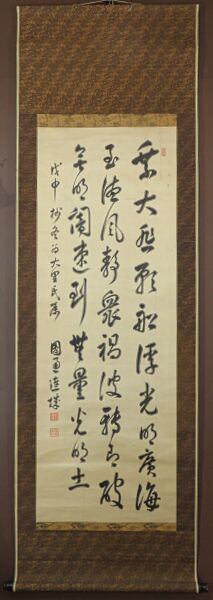 乘大悲願船浮光明廣海
至德風靜衆禍波轉即破
無明闇速到無量光明土
戊申抄冬為大里氏屬
園通